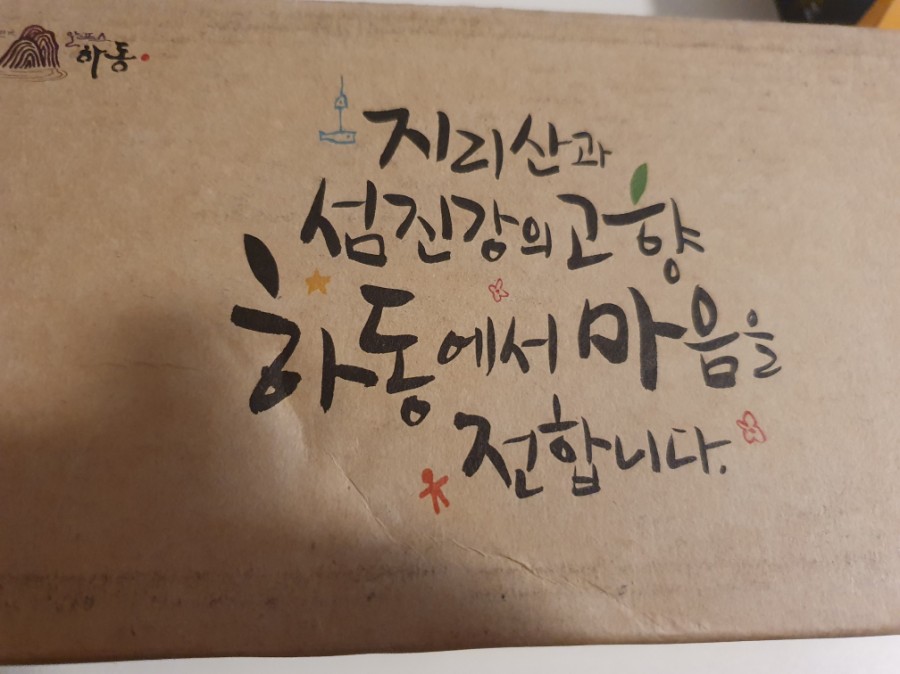 하동
지리산과
섬진강의 고향
하동에서 마음을
전합니다.